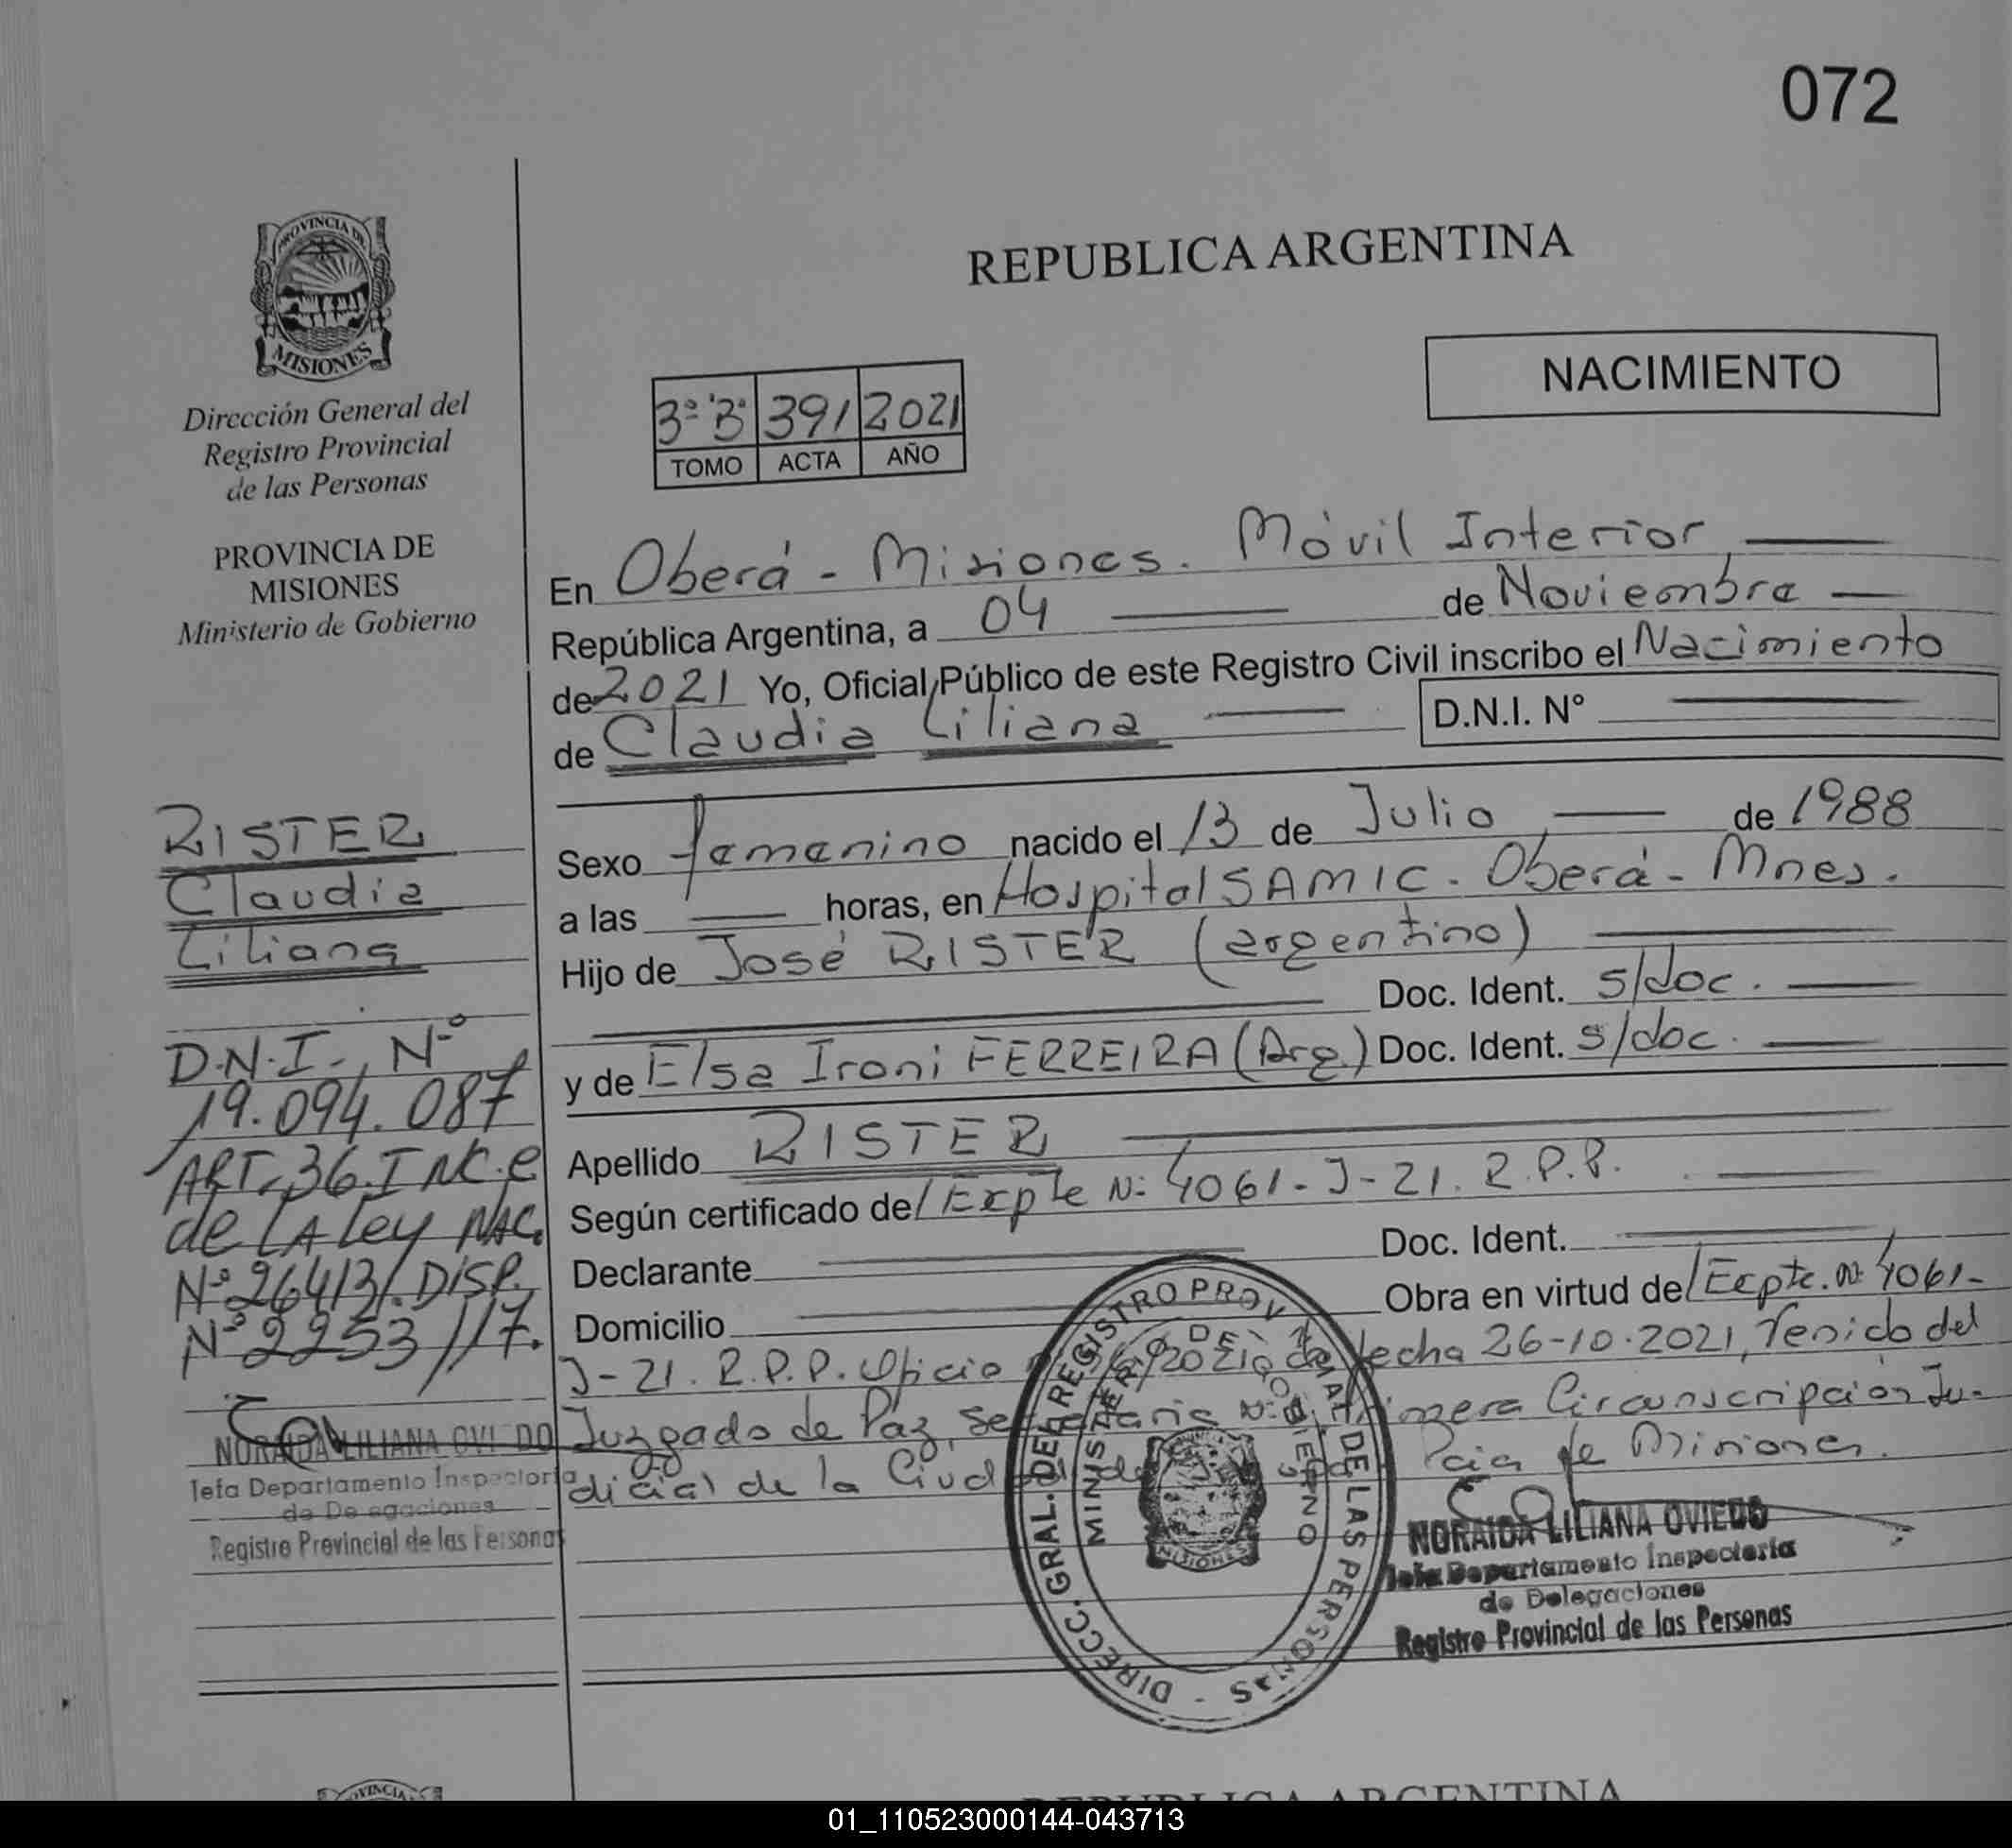 072
PROVINCIA DE
MISIONES
Dirección General del
Registro Provincial
de las Personas
PROVINCIA DE
MISIONES
Ministerio de Gobierno
REPUBLICA ARGENTINA
NACIMIENTO
3º "B" 391 2021
TOMO ACTA AÑO
En Oberá - Misiones. Móvil Interior
República Argentina, a 04 de Noviembre
de 2021 Yo, Oficial Público de este Registro Civil inscribo el Nacimiento
de Claudia Liliana D.N.I. N°
Sexo femenino nacido el 13 de Julio de 1988
a las horas, en Hospital SAMIC - Oberá - Mnes.
Hijo de José RISTER (argentino)
Doc. Ident. s/doc.
y de Elsa Ironi FERREIRA (Arg.) Doc. Ident. s/doc.
Apellido RISTER
Según certificado de Expte Nº 4061-J-21. R.P.P.
Declarante Doc. Ident.
Domicilio Obra en virtud de Expte. Nº 4061-
J-21. R.P.P. Oficio fecha 26-10-2021, Venido del
Juzgado de Paz, Primera Circunscripción Ju-
dicial de la Ciudad de Misiones.
RISTER
Claudia
Liliana
D.N.I. Nº
19.094.087
ART. 36. INC. e
de LA Ley NAC.
Nº 26413/. DISP.
Nº 2253/17.
NORAIDA LILIANA OVIEDO
Jefa Departamento Inspectoría
de Delegaciones
Registro Provincial de las Personas
DIRECC. GRAL. DEL REGISTRO PROV DE LAS PERSONAS
MINISTERIO DE GOBIERNO
MISIONES
NORAIDA LILIANA OVIEDO
Jefa Departamento Inspectoría
de Delegaciones
Registro Provincial de las Personas
REPUBLICA ARGENTINA
01_110523000144-043713